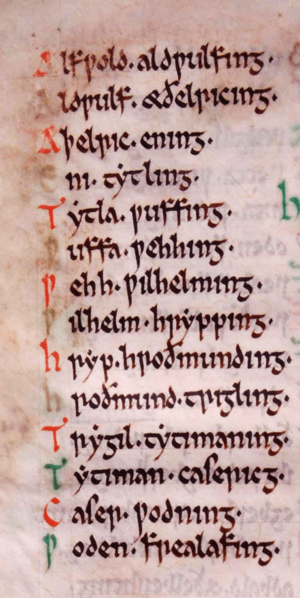 Alfƿold · aldƿulfing ·
Aldƿulf · æðelricing ·
Aþelric · ening ·
Eni · tẏtling ·
Tẏtla · ƿuffing ·
Ƿuffa · ƿehhing ·
Ƿehh · ƿilhelming ·
Ƿilhelm · hrẏpping ·
hrẏp · hroðmunding ·
hroðmund · trigling ·
Trẏgil · tẏtimaning ·
Tẏtiman · casericg ·
Caser · ƿodning ·
Ƿoden · frealafing ·